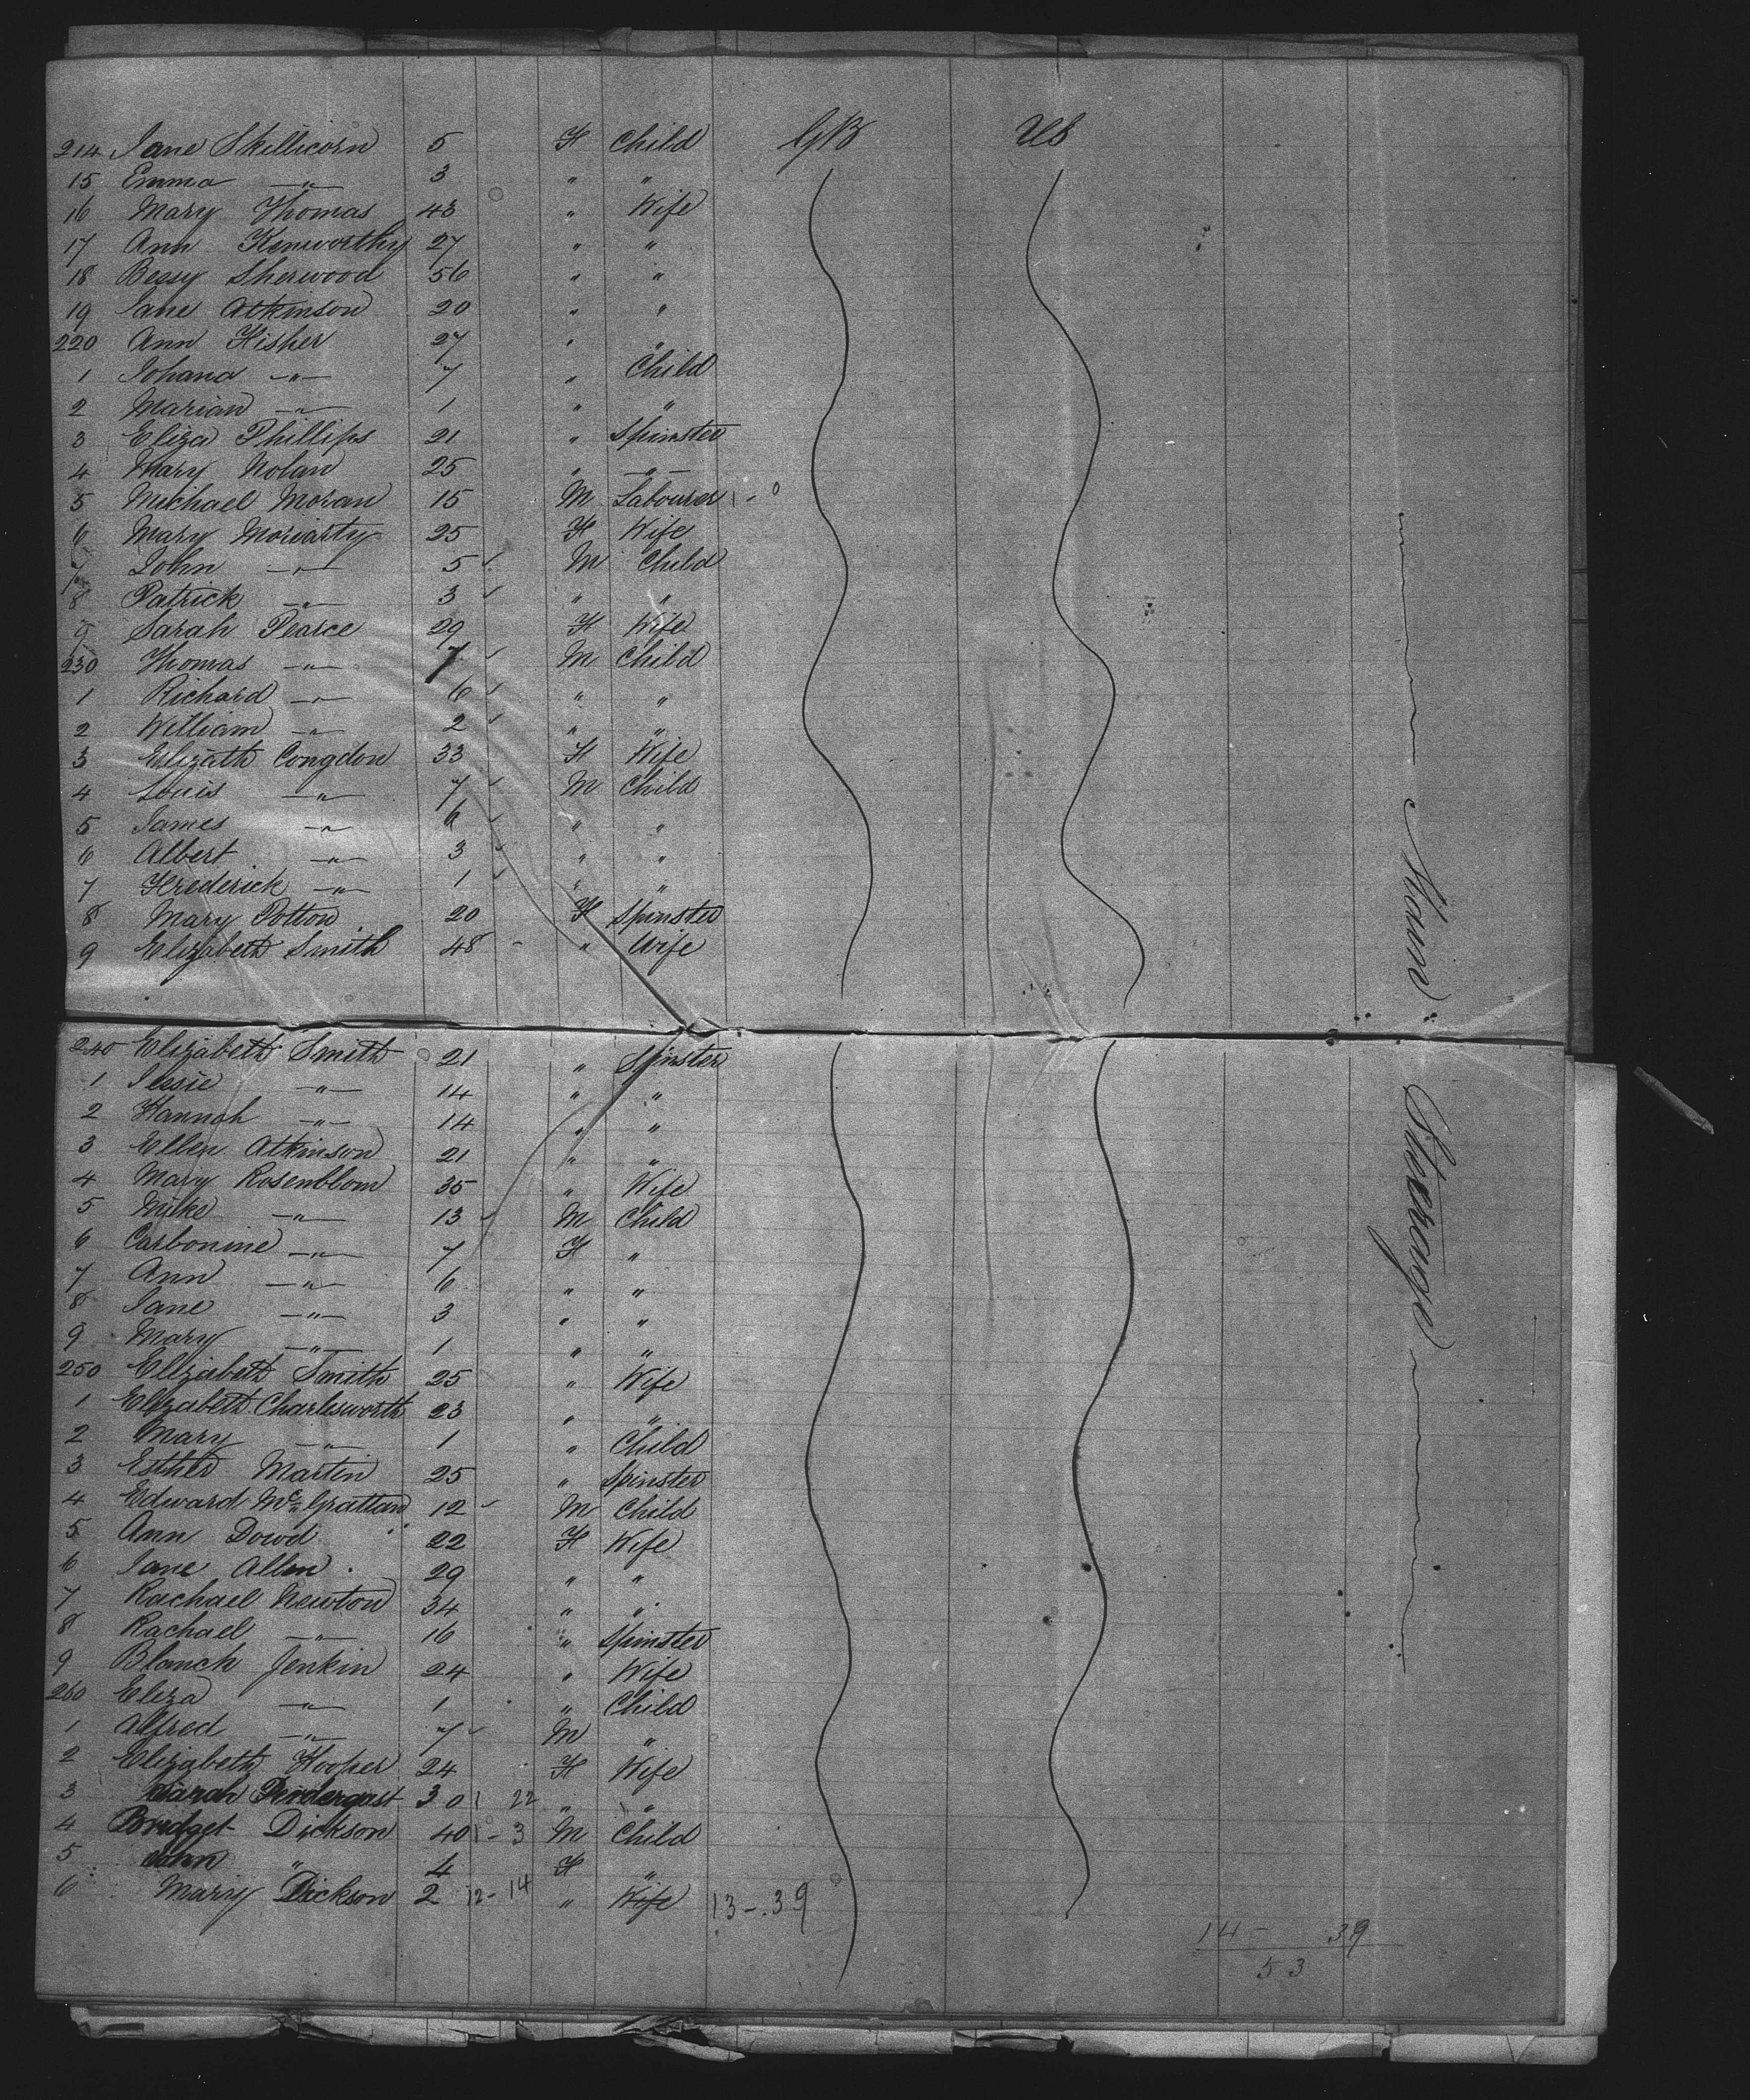 214 Jane Skillicorn 5 F Child GB US
15 Emma —"— 3 " "
16 Mary Thomas 43 " Wife
17 Ann Kenworthy 27 " "
18 Bessy Sherwood 56 " "
19 Jane Atkinson 20 " "
220 Ann Fisher 27 " "
1 Johana —"— 7 " Child
2 Marian —"— 1 " "
3 Eliza Phillips 21 " Spinster
4 Mary Nolan 25 " —"—
5 Michael Moran 15 M Labourer
6 Mary Moriarty 25 F Wife
7 John —"— 5 M Child
8 Patrick —"— 3 " "
9 Sarah Pearce 29 F Wife
230 Thomas —"— 7 M Child
1 Richard —"— 6 " "
2 William —"— 2 " "
3 Elizath Congdon 33 F Wife
4 Louis —"— 7 M Child
5 James —"— 6 " "
6 Albert —"— 3 " "
7 Frederick —"— 1 " "
8 Mary Potton 20 F Spinster
9 Elizabeth Smith 48 " Wife
240 Elizabeth Smith 21 " Spinster
1 Jessie —"— 14 " "
2 Hannah —"— 14 " "
3 Ellen Atkinson 21 " "
4 Mary Rosenblom 35 " Wife
5 Mike —"— 13 M Child
6 Carbonine —"— 7 F "
7 Ann —"— 6 " "
8 Jane —"— 3 " "
9 Mary —"— 1 " "
250 Elizabeth Smith 25 " Wife
1 Elizabeth Charlesworth 23 " "
2 Mary —"— 1 " Child
3 Esther Martin 25 " Spinster
4 Edward McGrattan 12 M Child
5 Ann Dowd 22 F Wife
6 Jane Allen 29 " "
7 Rachael Newton 34 " "
8 Rachael —"— 16 " Spinster
9 Blanch Jenkin 24 " Wife
260 Eliza —"— 1 " Child
1 Alfred —"— 7 M "
2 Elizabeth Hooper 24 F Wife
3 Sarah Pendergast 30 1 22 " "
4 Bridget Dickson 40 1-3 M Child
5 John " 4 F "
6 Mary Dickson 2 12-14 " Wife 13-.39
14- 39
53
Main Steerage